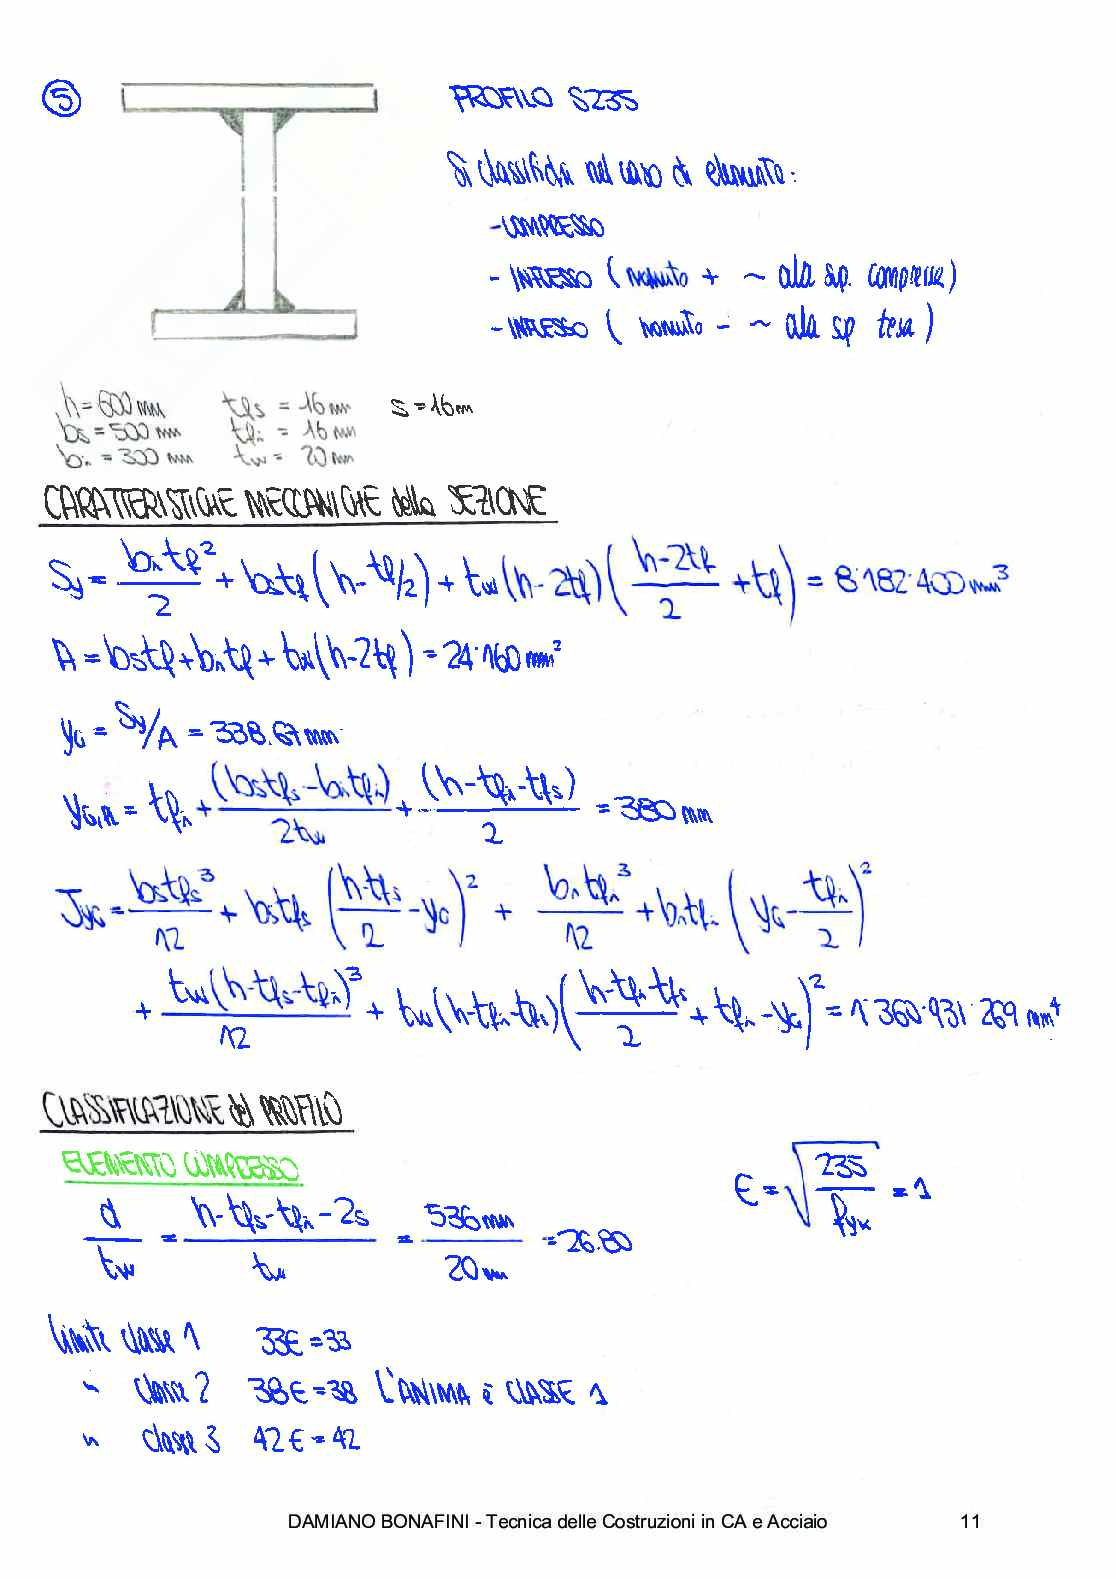 ⑤ PROFILO S235
Si classifichi nel caso di elemento:
- COMPRESSO
- INFLESSO ( momento + ~ ala sup. compressa )
- INFLESSO ( momento - ~ ala sp tesa )
h = 600 mm tfs = 16 mm s = 16 m
bs = 500 mm tfi = 16 mm
bi = 300 mm tw = 20 mm
CARATTERISTICHE MECCANICHE della SEZIONE
Sy = bi tf²/2 + bs tf (h - tf/2) + tw (h - 2tf) ((h - 2tf)/2 + tf) = 8'182'400 mm³
A = bs tf + bi tf + tw (h - 2tf) = 24'160 mm²
yG = Sy/A = 338.67 mm
yG,R = tfi + (bs tfs - bi tfi)/2tw + (h - tfi - tfs)/2 = 380 mm
JyG = bs tfs³/12 + bs tfs ((h - tfs)/2 - yG)² + bi tfi³/12 + bi tfi (yG - tfi/2)²
+ tw (h - tfs - tfi)³/12 + tw (h - tfi - tfs) ((h - tfi - tfs)/2 + tfi - yG)² = 1'360'931'269 mm⁴
CLASSIFICAZIONE del PROFILO
ELEMENTO COMPRESSO
d/tw = (h - tfs - tfi - 2s)/tw = 536 mm/20 mm = 26.80 ϵ = √(235/fyk) = 1
Limite classe 1 33ϵ = 33
" classe 2 38ϵ = 38 L'ANIMA è CLASSE 1
" classe 3 42ϵ = 42
DAMIANO BONAFINI - Tecnica delle Costruzioni in CA e Acciaio 11